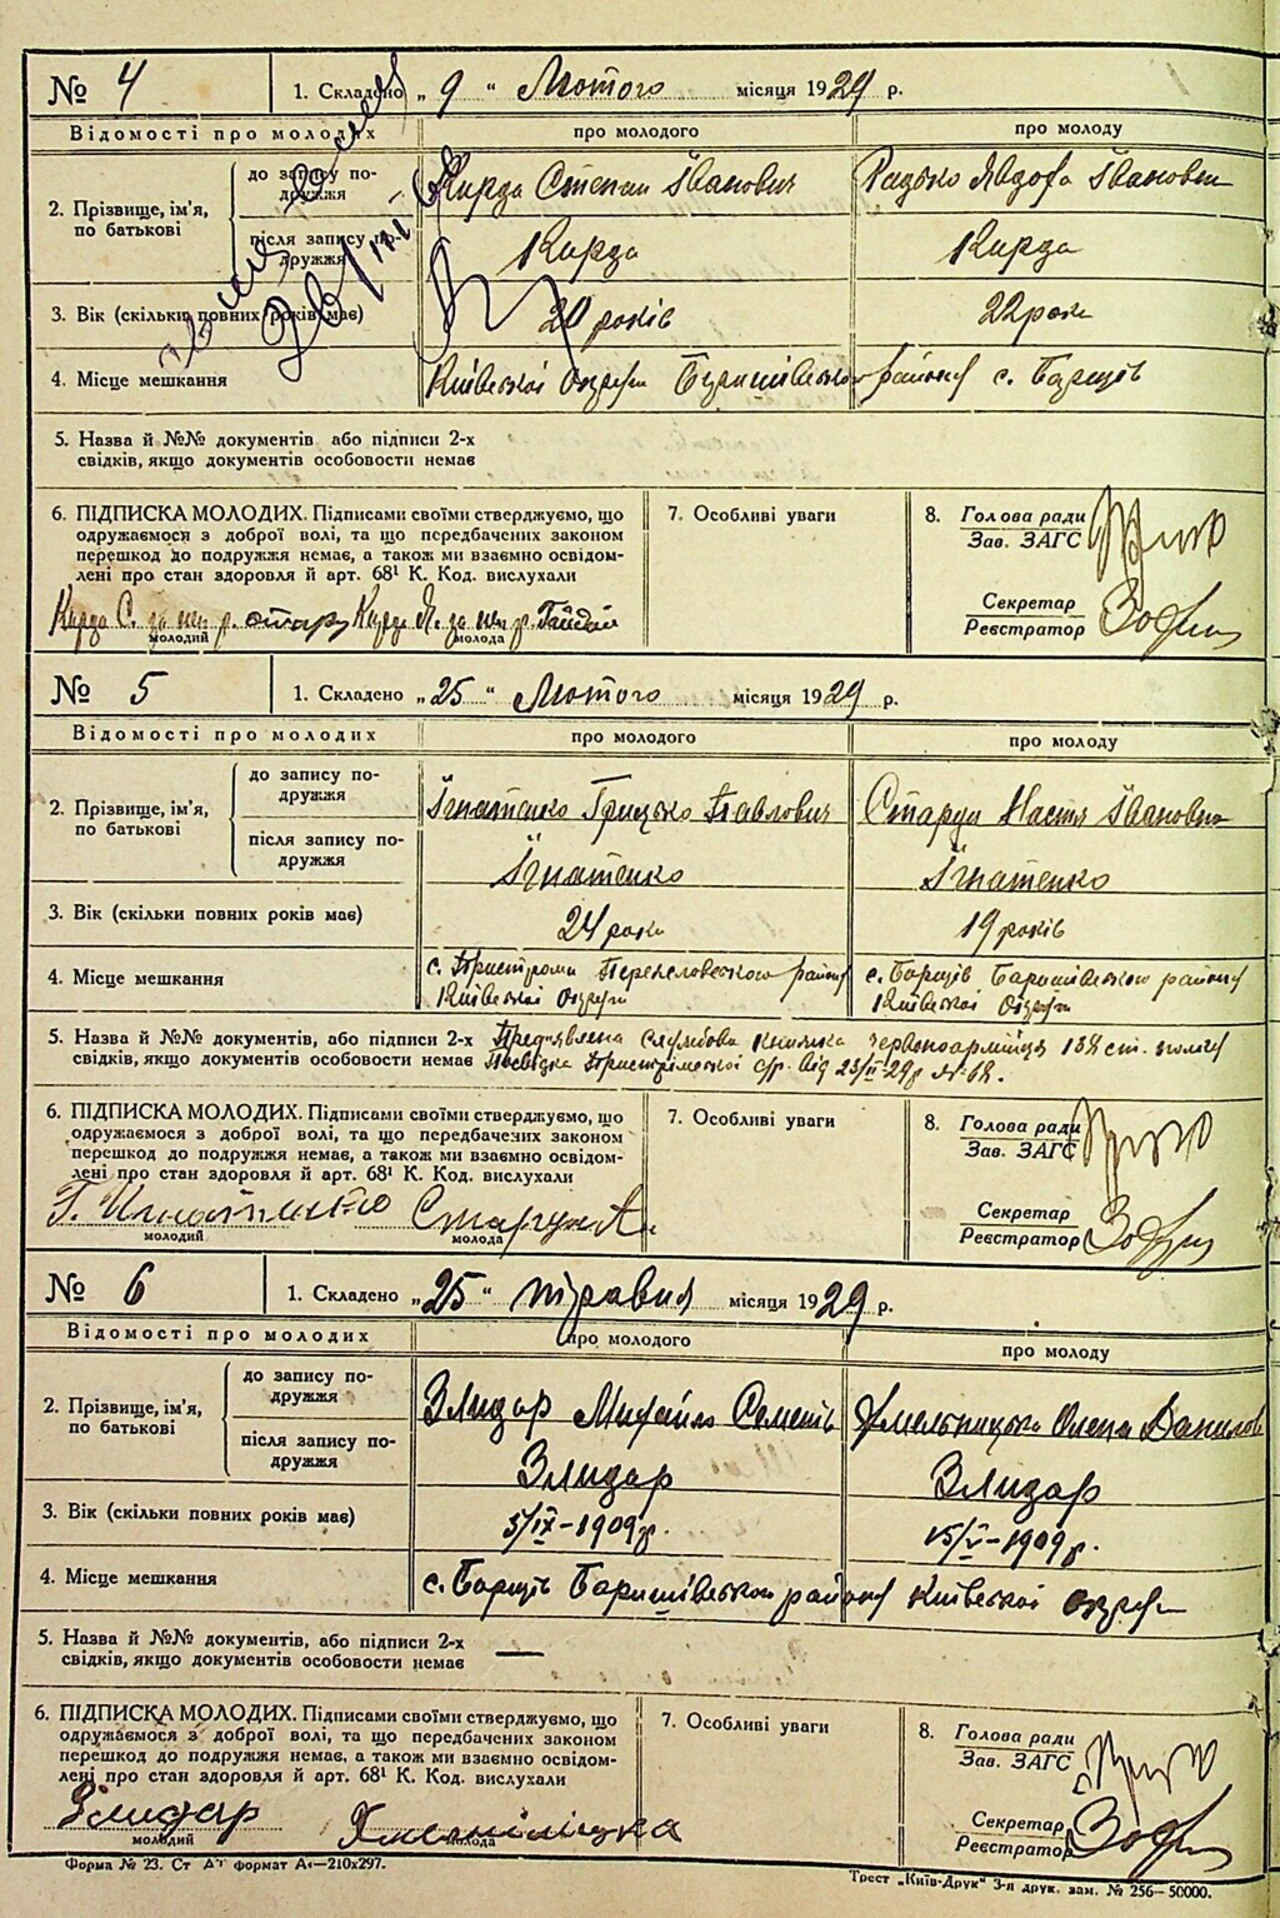 № 4 1. Складено „ 9 “ Лютого місяця 1929 р.
Відомості про молодих про молодого про молоду
2. Прізвище, ім'я, по батькові
до запису подружжя Кирда Степан Іванович Радько Явдоха Івановна
після запису подружжя Кирда Кирда
3. Вік (скільки повних років має) 20 років 22 роки
4. Місце мешкання Київської Округи Баришівського району с. Борщів
5. Назва й №№ документів або підписи 2-х
свідків, якщо документів особовости немає
6. ПІДПИСКА МОЛОДИХ. Підписами своїми стверджуємо, що
одружаємося з доброї волі, та що передбачених законом
перешкод до подружжя немає, а також ми взаємно освідом-
лені про стан здоровля й арт. 68¹ К. Код. вислухали
7. Особливі уваги
8. Голова ради
Зав. ЗАГС
Секретар
Реєстратор
Кирда С. за нп р. Кирда Я. за нп р.
молодий молода
№ 5 1. Складено „ 25 “ Лютого місяця 1929 р.
Відомості про молодих про молодого про молоду
2. Прізвище, ім'я, по батькові
до запису подружжя Ігнатенко Грицько Павлович Старун Настя Івановна
після запису подружжя Ігнатенко Ігнатенко
3. Вік (скільки повних років має) 24 роки 19 років
4. Місце мешкання с. Пристроми Переяславського району с. Борщів Баришівського району
Київської Округи Київської Округи
5. Назва й №№ документів, або підписи 2-х Предявлена Службова Книжка червоноармійця 138 ст. полку
свідків, якщо документів особовости немає Посвідка Пристромської с/р. від 23/II-29 р № 68.
6. ПІДПИСКА МОЛОДИХ. Підписами своїми стверджуємо, що
одружаємося з доброї волі, та що передбачених законом
перешкод до подружжя немає, а також ми взаємно освідом-
лені про стан здоровля й арт. 68¹ К. Код. вислухали
7. Особливі уваги
8. Голова ради
Зав. ЗАГС
Секретар
Реєстратор
Г. Игнатенко Старун
молодий молода
№ 6 1. Складено „ 25 “ травня місяця 1929 р.
Відомості про молодих про молодого про молоду
2. Прізвище, ім'я, по батькові
до запису подружжя Злидар Михайло Семенів Хмельницька Олена Данилов
після запису подружжя Злидар Злидар
3. Вік (скільки повних років має) 5/IX-1909 р. 15/V-1909 р.
4. Місце мешкання с. Борщів Баришівського району Київської Округи
5. Назва й №№ документів, або підписи 2-х —
свідків, якщо документів особовости немає
6. ПІДПИСКА МОЛОДИХ. Підписами своїми стверджуємо, що
одружаємося з доброї волі, та що передбачених законом
перешкод до подружжя немає, а також ми взаємно освідом-
лені про стан здоровля й арт. 68¹ К. Код. вислухали
7. Особливі уваги
8. Голова ради
Зав. ЗАГС
Секретар
Реєстратор
Злидар
молодий молода
Форма № 23. Ст формат А4—210х297.
Трест „Київ-Друк“ 3-я друк. зам. № 256—50000.